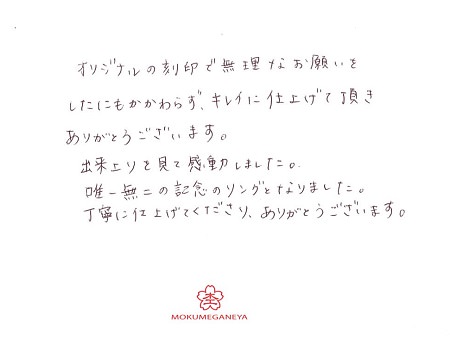 オリジナルの刻印で無理なお願いを
したにもかかわらず、キレイに仕上げて頂き
ありがとうございます。
出来上りを見て感動しました。
唯一無二の記念のリングとなりました。
丁寧に仕上げてくださり、ありがとうございます。
MOKUMEGANEYA